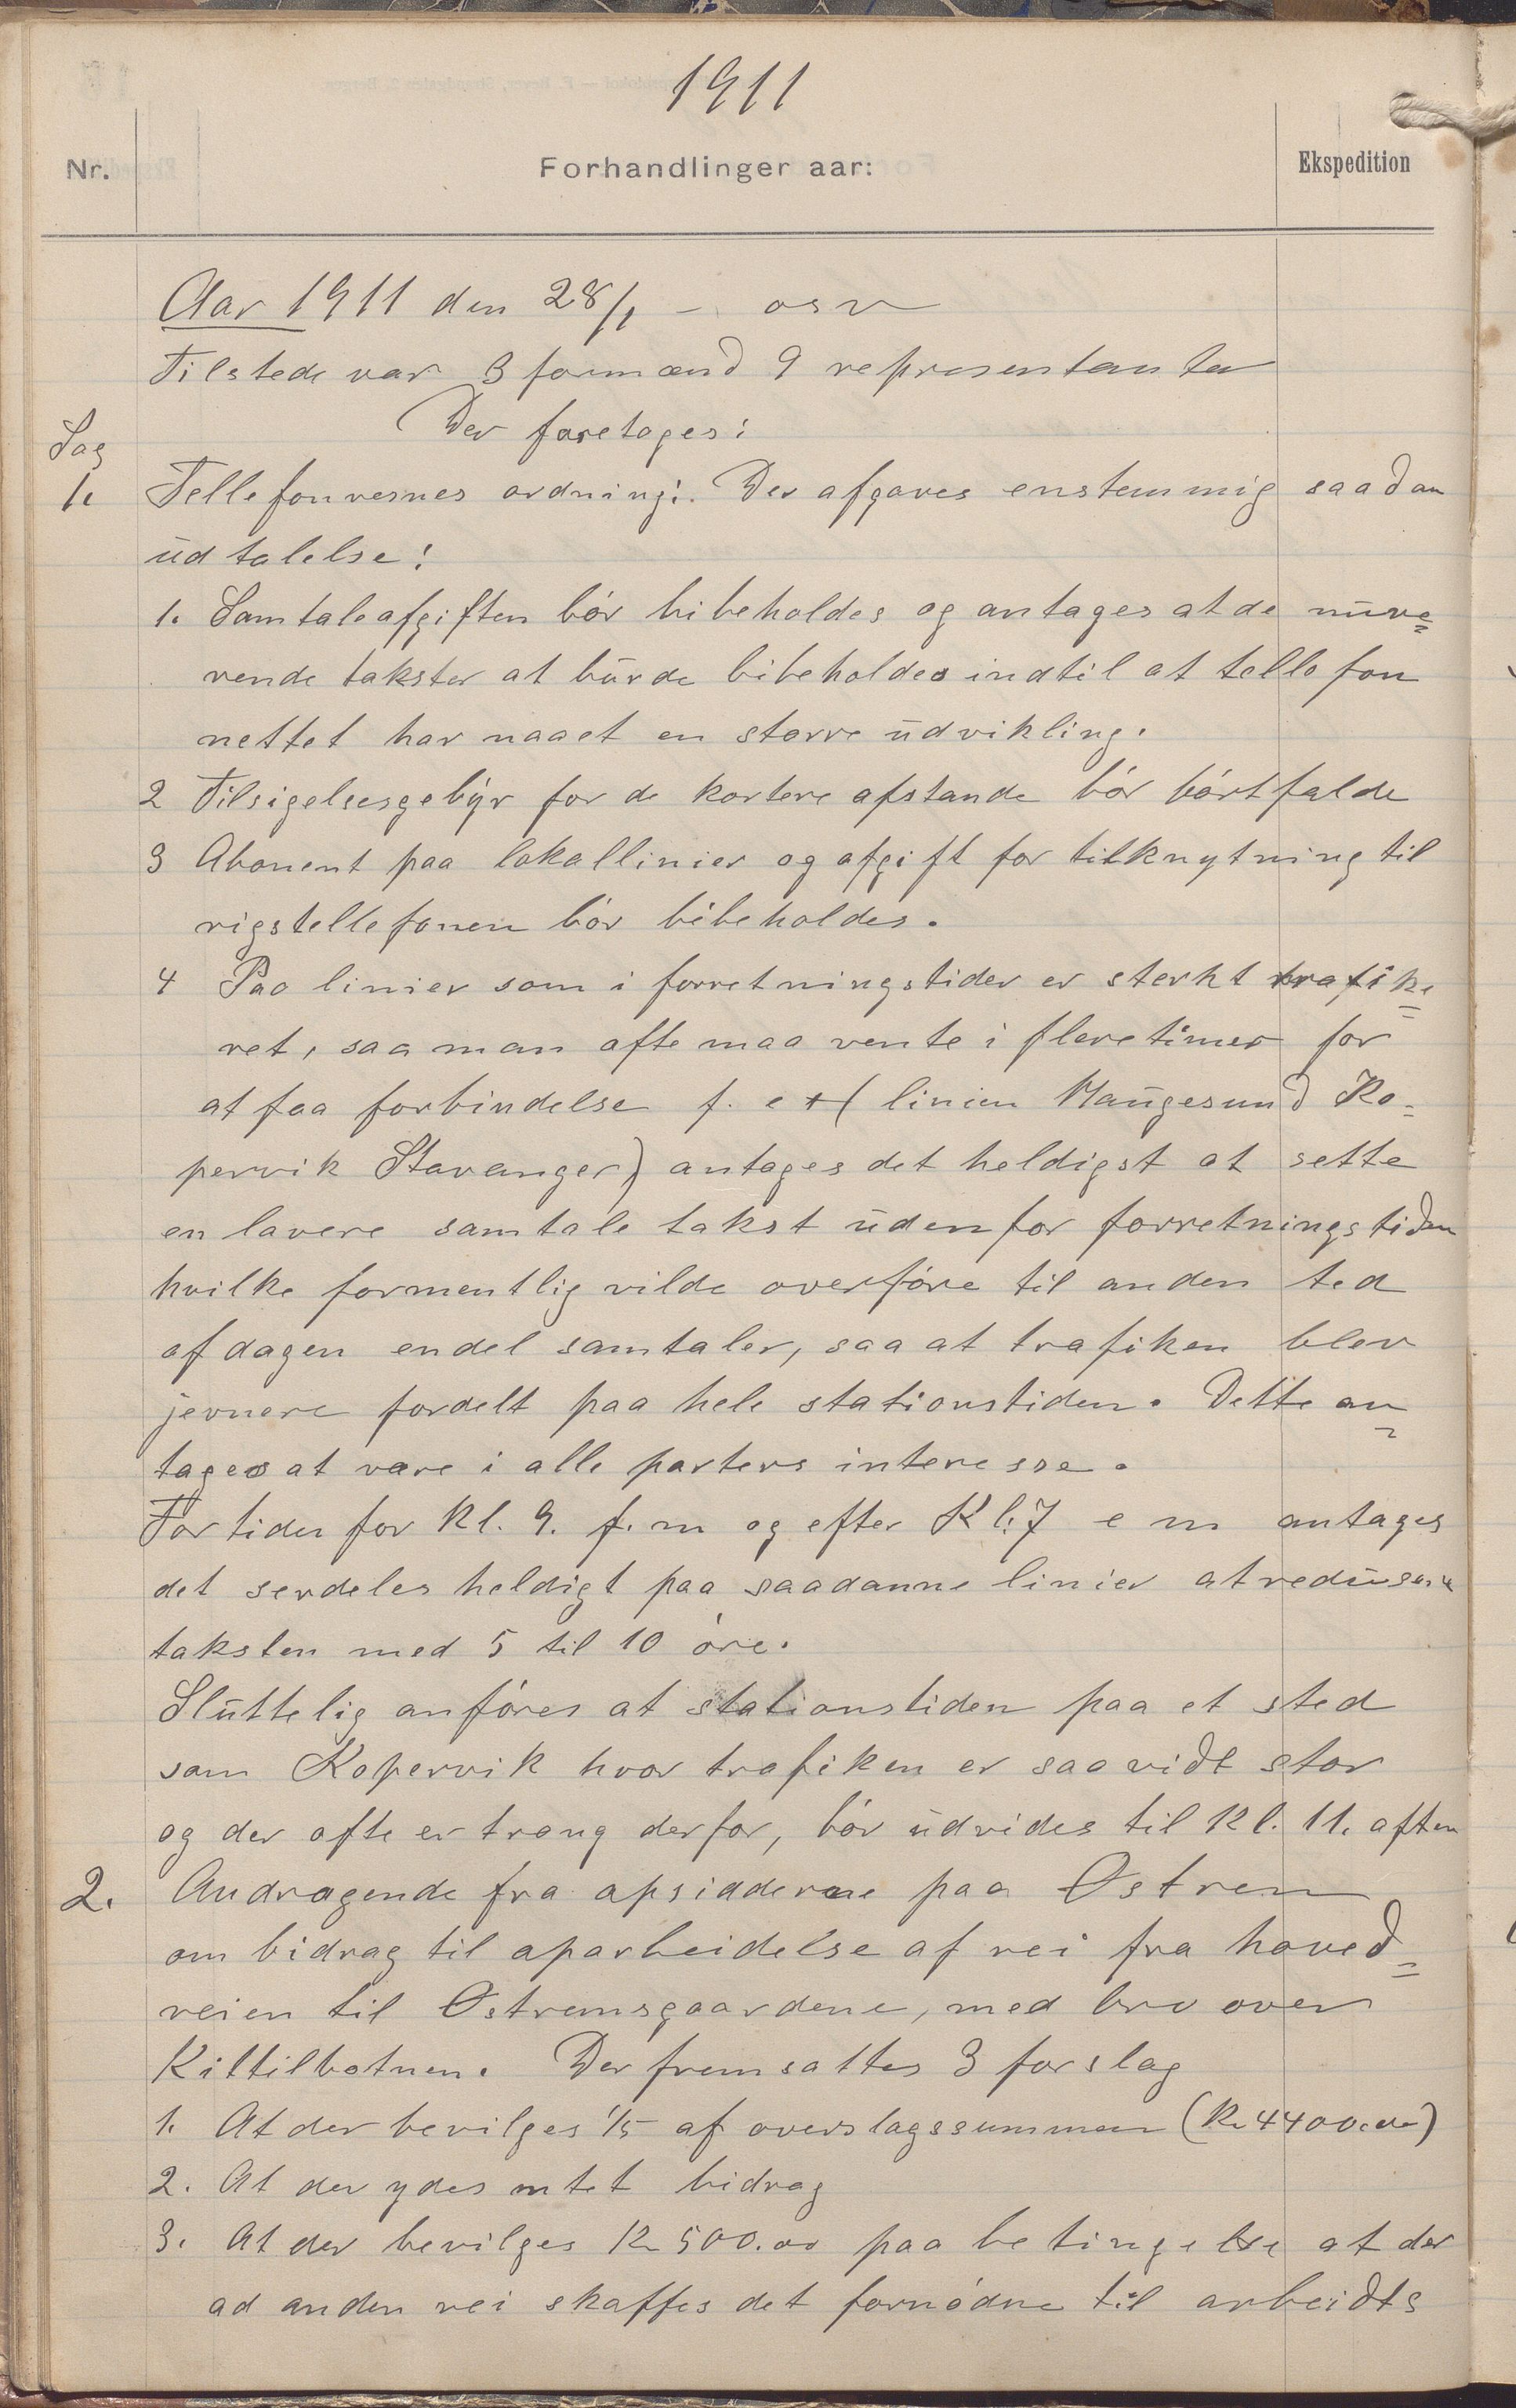 1911
Nr.
Forhandlinger aar:
Ekspedition
Aar 1911 den 28/1 – osv
Tilstede var 3 formænd 9 representanter
Der foretoges:
Sag
1. Tellefonvesnes ordning:. Der afgaves enstemmig saadan
udtalelse:
1. Samtaleafgiften bør bibeholdes og antages at de nuvæ=
rende takster at burde bibeholdes indtil at tellefon
nettet har naaet en storre udvikling.
2 Tilsigelsesgebyr for de kortere afstande bór bórtfalde
3 Abonent paa lokallinier og afgift for tilknytning til
rigstellefonen bór bibeholdes.
4 Paa linier som i forretningstider er sterkt trafike=
ret, saa man ofte maa vente i flere timer for
at faa forbindelse f. ex (linien Haugesund Ko=
pervik Stavanger) antages det heldigst at sette
en lavere samtale takst udenfor forretningstiden
hvilke formentlig vilde overfóre til anden tid
af dagen endel samtaler, saa at trafiken blev
jevnere fordelt paa hele stationstiden. Dette an=
tages at være i alle parters interesse.
For tiden for kl. 9. f. m og efter Kl. 7 e m antages
det serdeles heldigt paa saadanne linier at redusere
taksten med 5 til 10 óre.
Sluttelig anfóres at stationstiden paa et sted
som Kopervik hvor trafiken er saavidt stor
og der ofte er trang derfor, bór udvides til Kl. 11. aften
2. Andragende fra opsidderne paa Østrem
om bidrag til oparbeidelse af vei fra hoved=
veien til Østremsgaardene, med bro over
Kittilbotnen. Der fremsattes 3 forslag
1. At der bevilges 1/5 af overslagssummen (Kr 4400.00)
2. At der ydes intet bidrag
3. At der bevilges Kr 500.00 paa betingelse at der
ad anden vei skaffes det fornódne til arbeidts